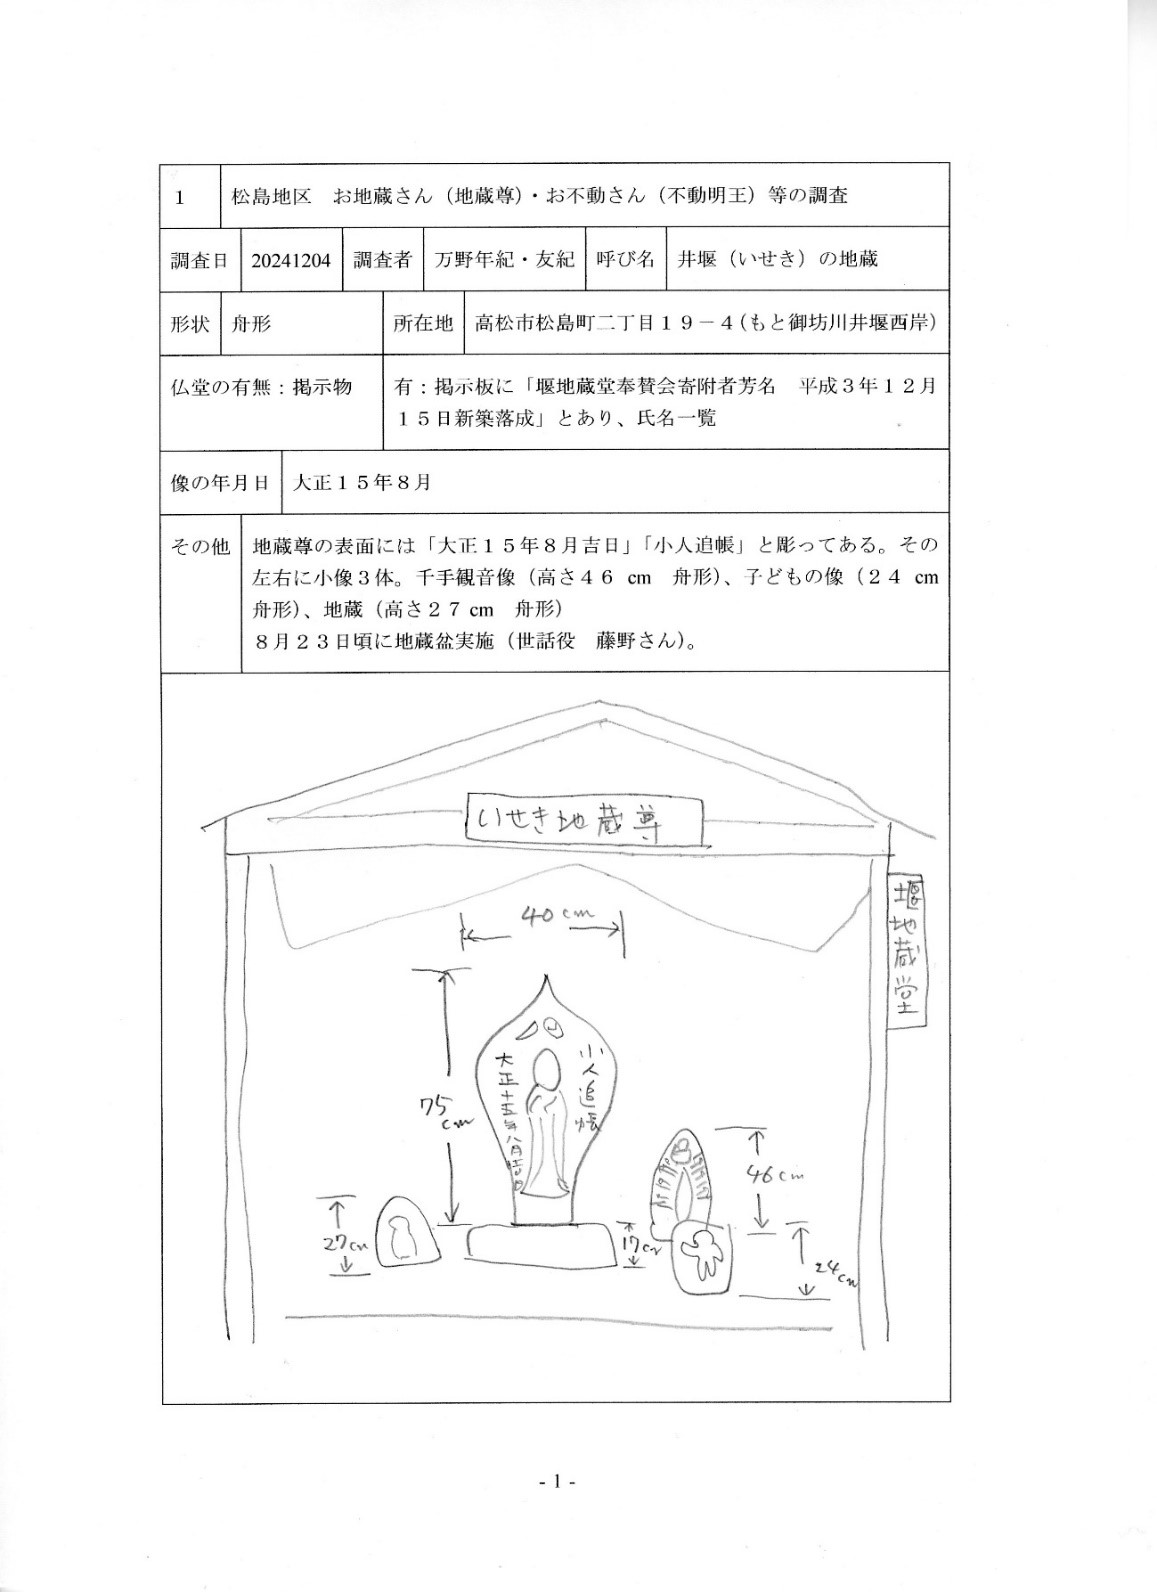 1 松島地区　お地蔵さん（地蔵尊）・お不動さん（不動明王）等の調査
調査日 20241204 調査者 万野年紀・友紀 呼び名 井堰（いせき）の地蔵
形状 舟形 所在地 高松市松島町二丁目１９－４（もと御坊川井堰西岸）
仏堂の有無：掲示物 有：掲示板に「堰地蔵堂奉賛会寄附者芳名　平成３年１２月
１５日新築落成」とあり、氏名一覧
像の年月日 大正１５年８月
その他 地蔵尊の表面には「大正１５年８月吉日」「小人追帳」と彫ってある。その
左右に小像３体。千手観音像（高さ４６ cm　舟形）、子どもの像（２４ cm
舟形）、地蔵（高さ２７ cm　舟形）
８月２３日頃に地蔵盆実施（世話役　藤野さん）。
いせき地蔵尊
堰地蔵堂
40cm
75
cm
小人追帳
大正十五年八月吉日
46cm
27cm
17cm
24cm
- 1 -